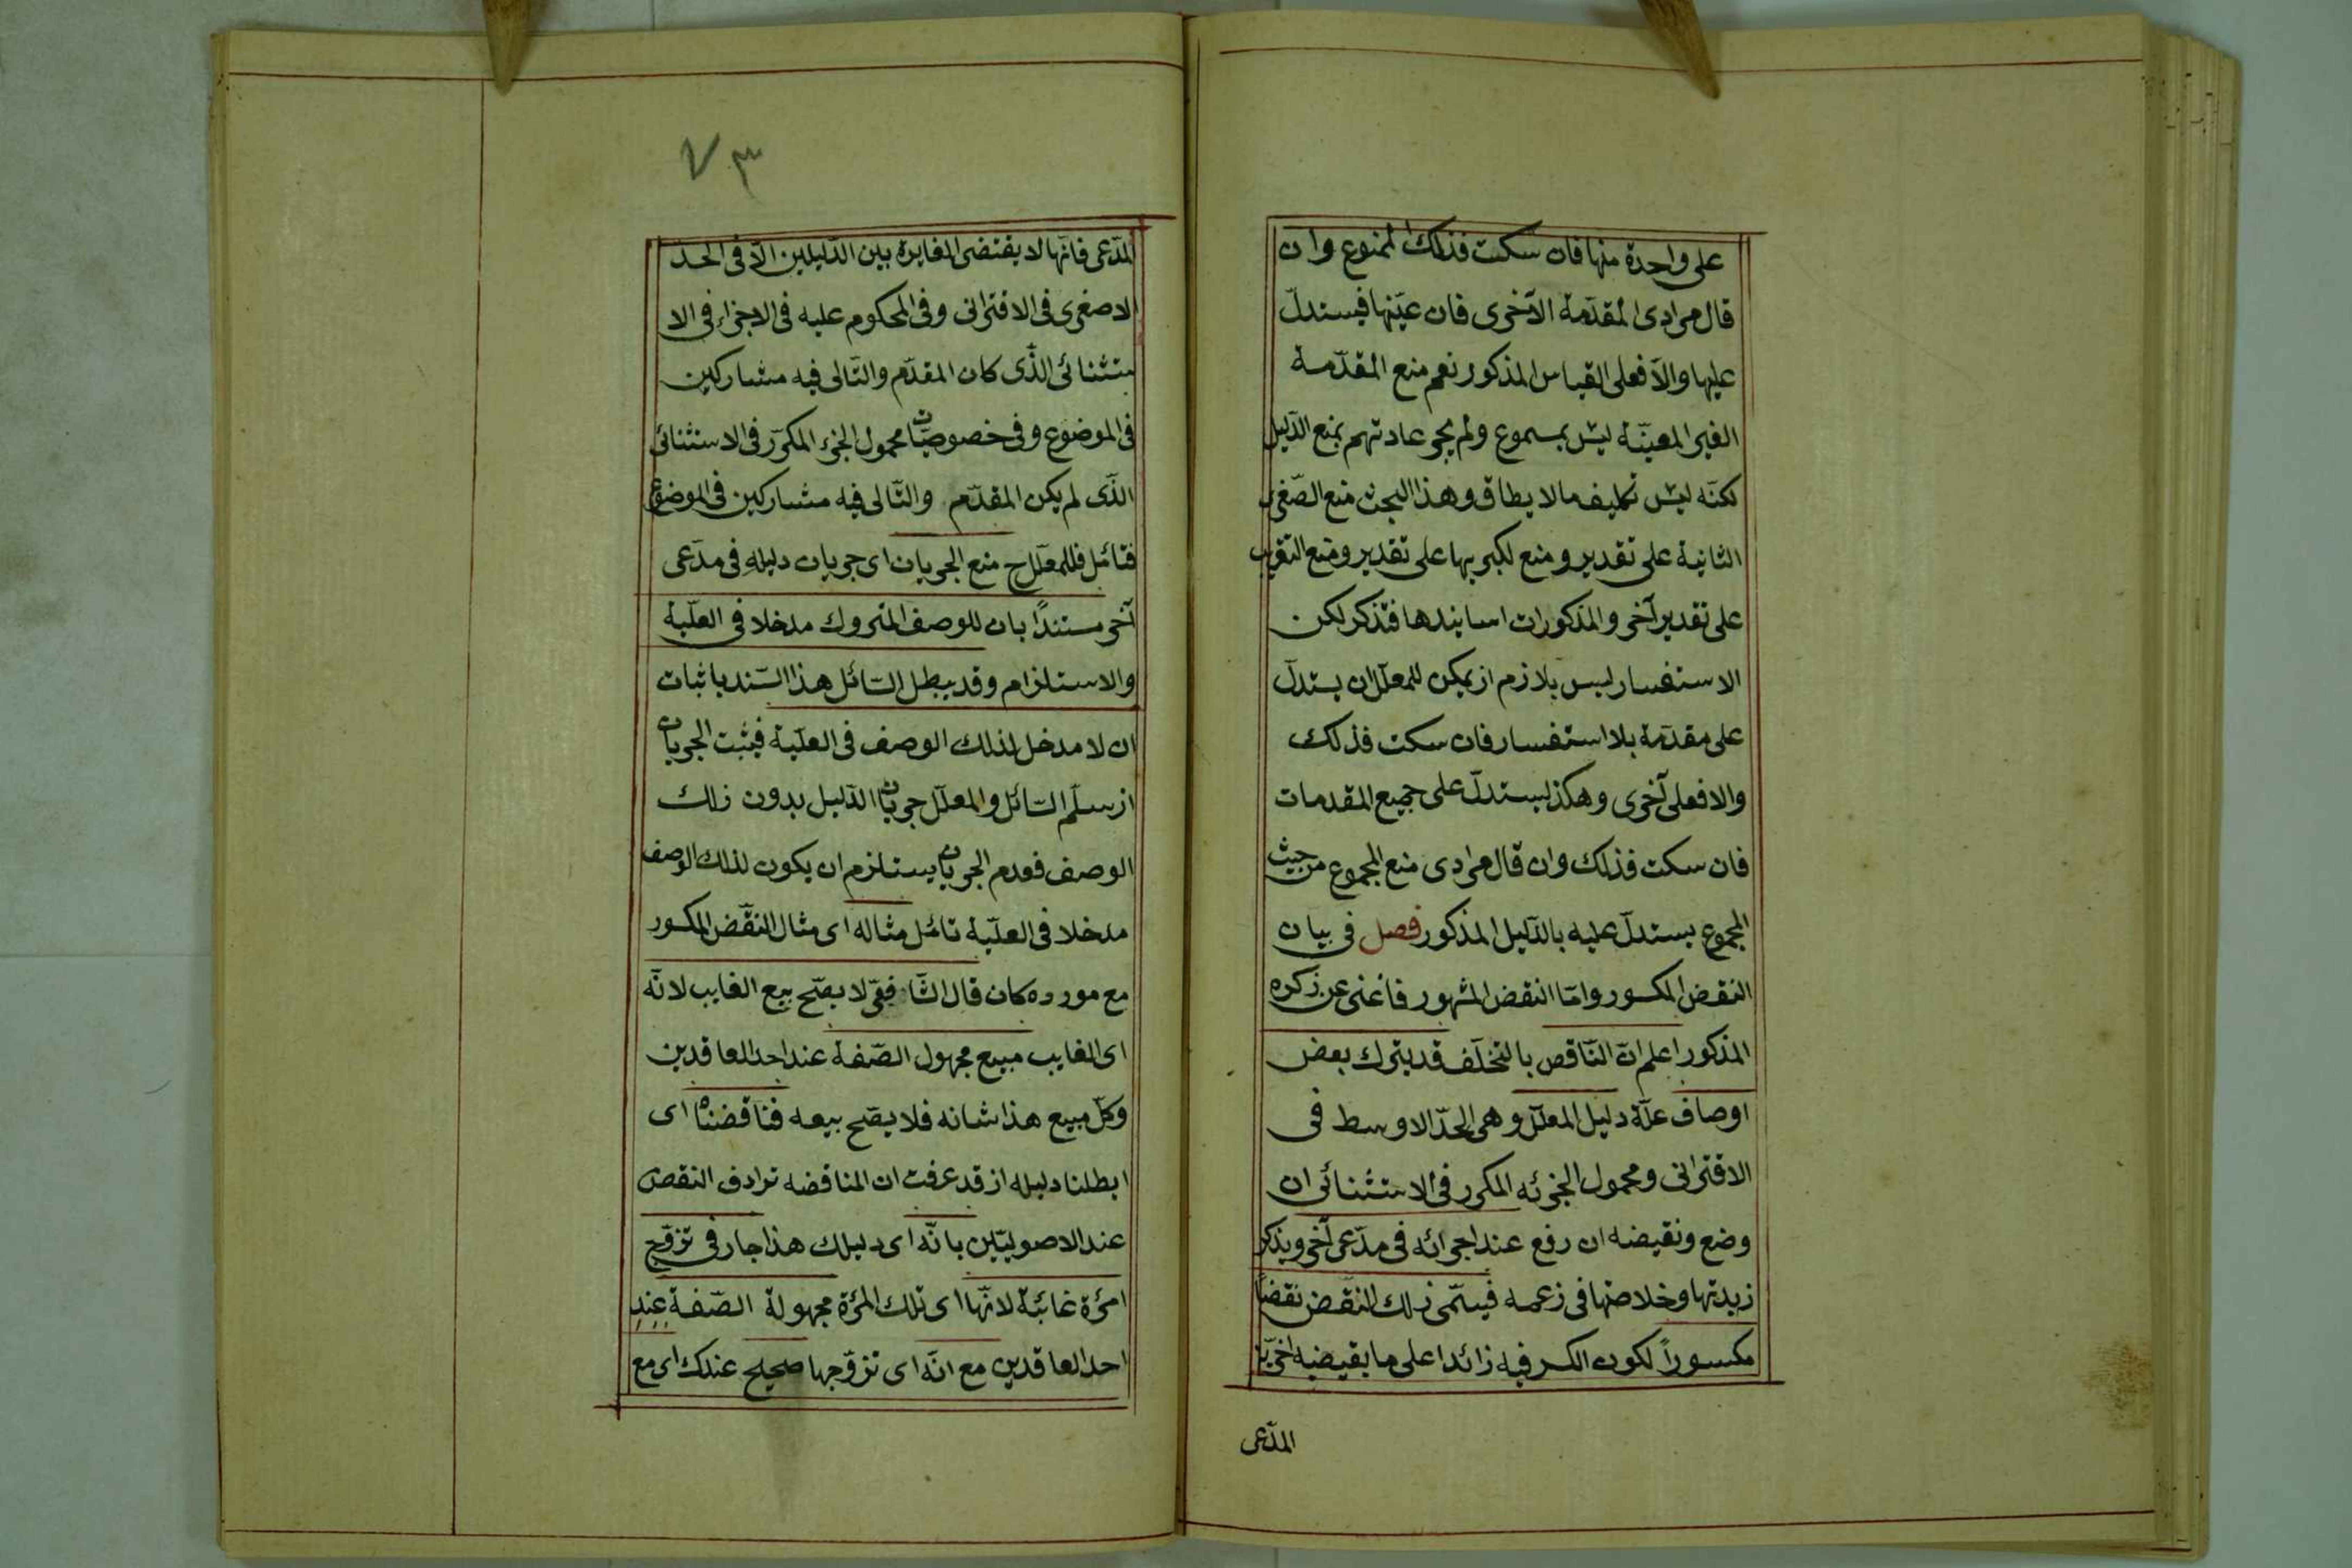 على واحدة منها فان سكت فذلك الممنوع وان
قال مرادى المقدّمة الاخرى فان عيّنها فيستدلّ
عليها والاّ فعلى القياس المذكور نعم منع المقدّمة
الغير المعينّة ليس بمسموع ولم يجر عادتهم بمنع الدّليل
لكنّه ليس تكليف مالا يطاق وهذا البحث منع الصّغرى
الثانية على تقدير ومنع لكبريها على تقدير ومنع التقريب
على تقدير آخر والمذكورات اسانيدها فتذكر لكن
الاستفسار ليس بلازم اذ يمكن للمعلّل ان يستدلّ
على مقدّمة بلا استفسار فان سكت فذلك
والا فعلى آخرى وهكذا يستدلّ على جميع المقدمات
فان سكت فذلك وان قال مرادى منع المجموع من حيث
المجموع يستدلّ عليه بالدّليل المذكور فصل فى بيان
النقض المكسور وامّا النقض المشهور فاغنى عن ذكره
المذكور اعلم انّ النّاقض بالتخلّف قد يترك بعض
اوصاف علّة دليل المعلّل وهى الحدّ الاوسط فى
الاقترانى ومحمول الجزئه المكرر فى الاستثنائى ان
وضع ونقيضه ان رفع عند اجرائه فى مدّعى آخر ويذكر
زبدتها وخلاصتها فى زعمه فيسمّى ذلك النقض نقضًا
مكسوراً لكون الكسر فيه زائدا على ما يقيضيه
المدّعى
٧٣
المدّعى فانّها لا يقتضى المغايرة بين الدّليلين الاّ فى الحدّ
الاصغرى فى الاقترانى وفى المحكوم عليه فى الاجزاء فى الا
ستثنائى الذّى كان المقدّم والتّالى فيه مشاركين
فى الموضوع وفى خصوصيّات محمول الجزء المكرّر فى الاستثنائى
الذّى لم يكن المقدّم والتّالى فيه مشاركين فى الموضوع
فتائمّل فللمعلّل ح منع الجريان اى جريان دليله فى مدّعى
آخر مستندًا بان للوصف المتروك مدخلا فى العلّية
والاستلزام وقد يبطل السّائل هذا السّند باثبات
ان لا مدخل لذلك الوصف فى العلّية فيثبت الجريان
اذ سلّم السّائل والمعلّل جريان الدّليل بدون ذلك
الوصف فعدم الجريان يستلزم ان يكون لذلك الوصف
مدخلا فى العلّية تائمّل مثاله اى مثال النقّض المكسور
مع مورده كان قال الشّافعىّ لا يصّح بيع الغايب لانّه
اى الغايب مبيع مجهول الصّفة عند احد العاقدين
وكلّ مبيع هذا شانه فلا يصّح بيعه فناقضناه اى
ابطلنا دليله اذ قد عرفت ان المناقضه ترادف النقض
عند الاصوليّين بانّه اى دليلك هذا جار فى تزوّج
امرٔة غائبة لانّها اى تلك المرٔة مجهولة الصّفة عند
احد العاقدين مع انّه اى تزوّجها صحيح عندك اى مع